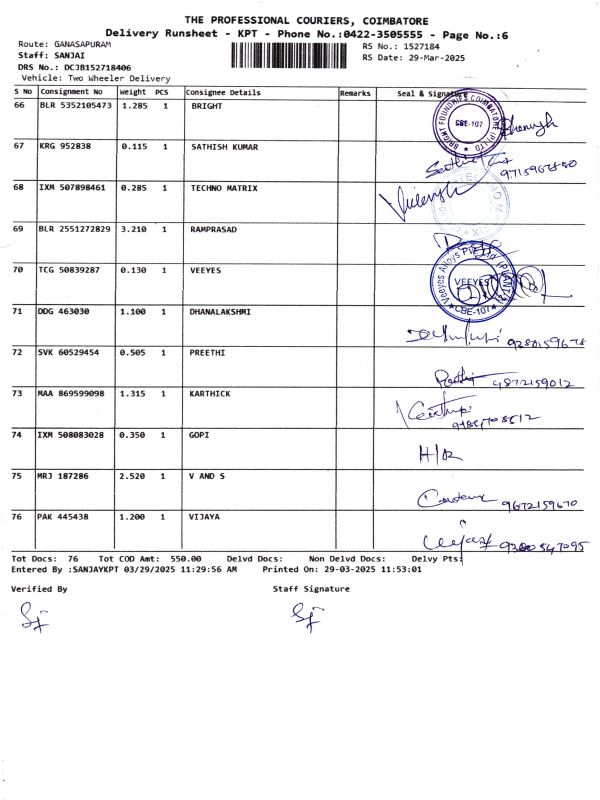 THE PROFESSIONAL COURIERS, COIMBATORE
Delivery Runsheet - KPT - Phone No.:0422-3505555 - Page No.:6
Route: GANASAPURAM
RS No.: 1527184
Staff: SANJAI
RS Date: 29-Mar-2025
DRS No.: DCJB152718406
Vehicle: Two Wheeler Delivery
S No Consignment No Weight PCS Consignee Details Remarks Seal & Signature
66 BLR 5352105473 1.285 1 BRIGHT
BRIGHT FOUNDRIES COIMBATORE (P) LTD
CBE-107
67 KRG 952838 0.115 1 SATHISH KUMAR
68 IXM 507898461 0.285 1 TECHNO MATRIX
69 BLR 2551272829 3.210 1 RAMPRASAD
70 TCG 50839287 0.130 1 VEEYES
Veeyes Alloys Pvt Ltd (PLANT
VEEYES
CBE-107
71 DDG 463030 1.100 1 DHANALAKSHMI
72 SVK 60529454 0.505 1 PREETHI
4872159012
73 MAA 869599098 1.315 1 KARTHICK
74 IXM 508083028 0.350 1 GOPI
75 MRJ 187286 2.520 1 V AND S
9672159670
76 PAK 445438 1.200 1 VIJAYA
Tot Docs: 76 Tot COD Amt: 550.00 Delvd Docs: Non Delvd Docs: Delvy Pts:
Entered By :SANJAYKPT 03/29/2025 11:29:56 AM Printed On: 29-03-2025 11:53:01
Verified By Staff Signature